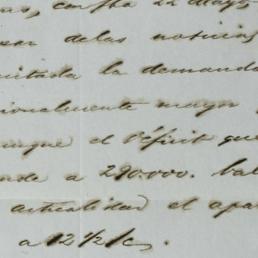 con fha 22 Mayo
de las noticias
la demanda
cionalmente mayor
unque el déficit que
a 290000.
actualidad el
a 12 1/2 /c,